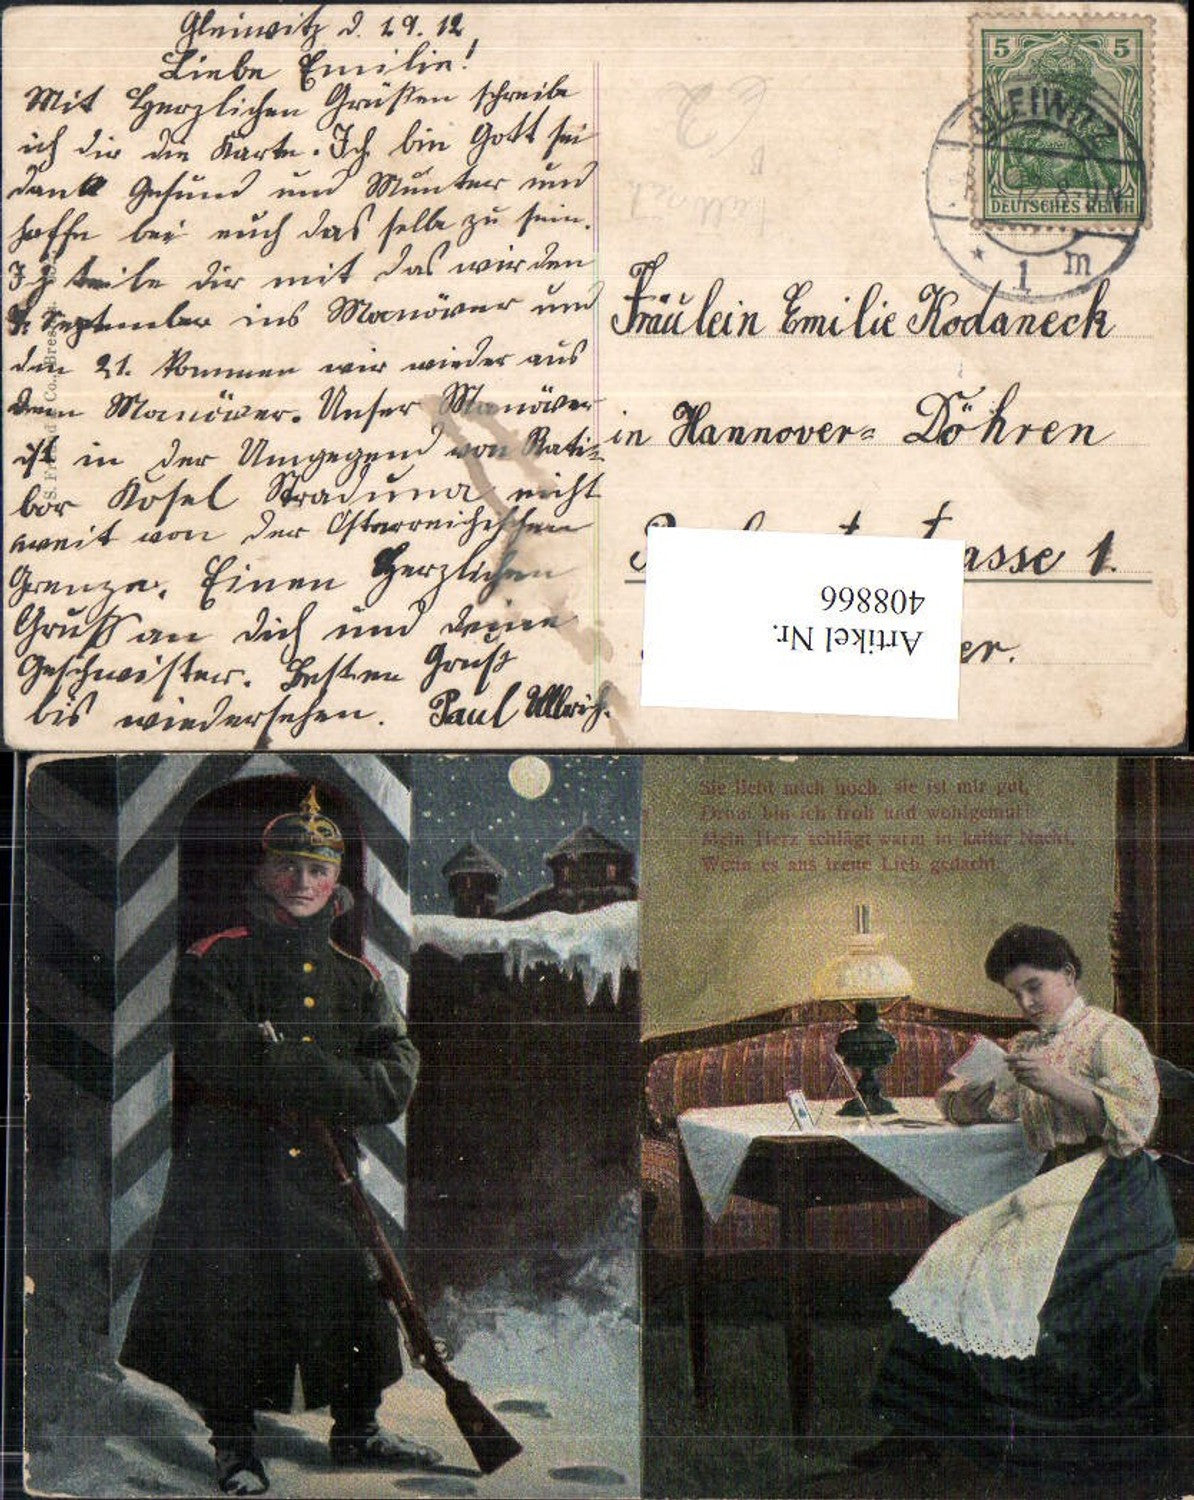 Gleiwitz d. 1 9. 12
Liebe Emilie!
Mit Herzlichen Grüßen schreibe
ich dir die Karte. Ich bin Gott sei
dank Gesund und Munter und
hoffe bei euch das selbe zu sein.
Ich teile dir mit das wir den
September ins Manöver und
den 21. kommen wir wieder aus
dem Manöver. Unser Manöver
ist in der Umgegend von Rati=
bor Kosel Straduna nicht
weit von der Österreichischen
Grenze. Einen Herzlichen
Gruß an dich und deine
Geschwister. Besten Gruß
bis wiedersehen. Paul Ullrich.
5 5
DEUTSCHES REICH
GLEIWITZ
12 8-9 N
* 1 m
Fräulein Emilie Kodaneck
in Hannover= Döhren
asse 1.
er.
Artikel Nr.
408866
Sie liebt mich noch, sie ist mir gut,
Drum bin ich froh und wohlgemut!
Mein Herz schlägt warm in kalter Nacht,
Wenn es ans treue Lieb gedacht.